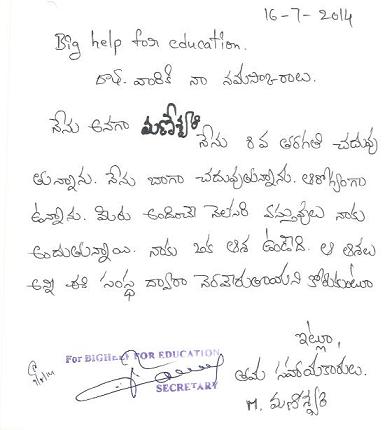 16-7-2014
Big help for education.
వారికి నా నమస్కారాలు.
నేను అనగా మణేశ్వరి
నేను 8 వ తరగతి చదువు
తున్నాను. నేను బాగా చదువుతున్నాను. ఆరోగ్యంగా
ఉన్నాను. మీరు అందించే నెలసరి వస్తువులు నాకు
అందుతున్నాయి. నాకు ఒక ఆశ ఉండేది. ఆ ఆశలు
అన్ని ఈ సంస్థ ద్వారా నెరవేరుతాయని కోరుకుంటూ
ఇట్లూ,
For BIGHELP FOR EDUCATION
SECRETARY
తమ సహాయకారులు.
M. మణేశ్వరి